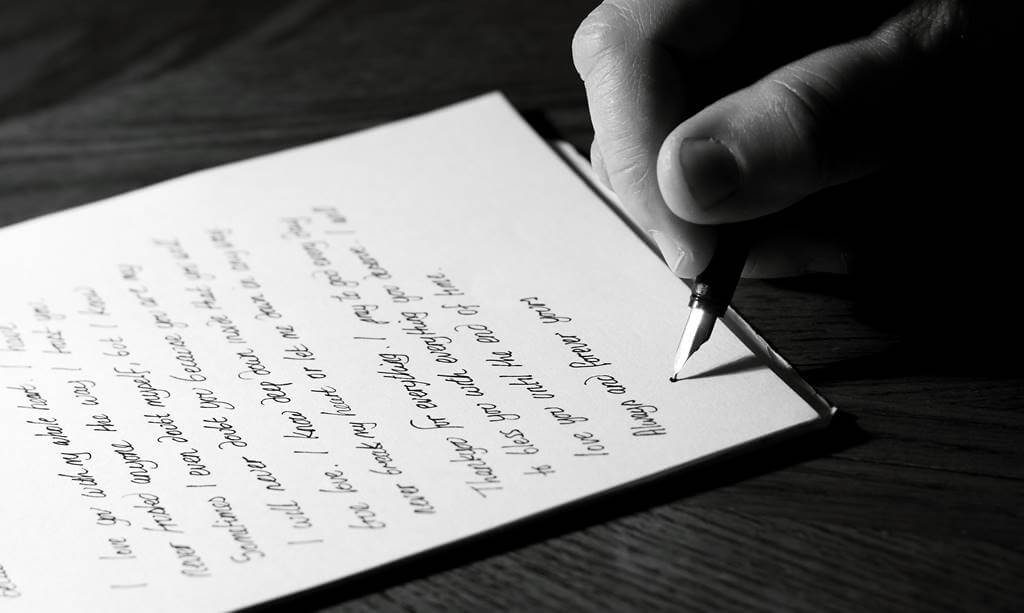 I love you with my whole heart. I have
never trusted anyone the way I trust you.
Sometimes I even doubt myself but I know
I will never doubt you because you are my
true love. I know deep down inside that you will
never break my heart or let me down in any way.
Thankyou for everything. I pray to god every day
to bless you with everything you deserve. I will
love you until the end of time.
Always and forever yours